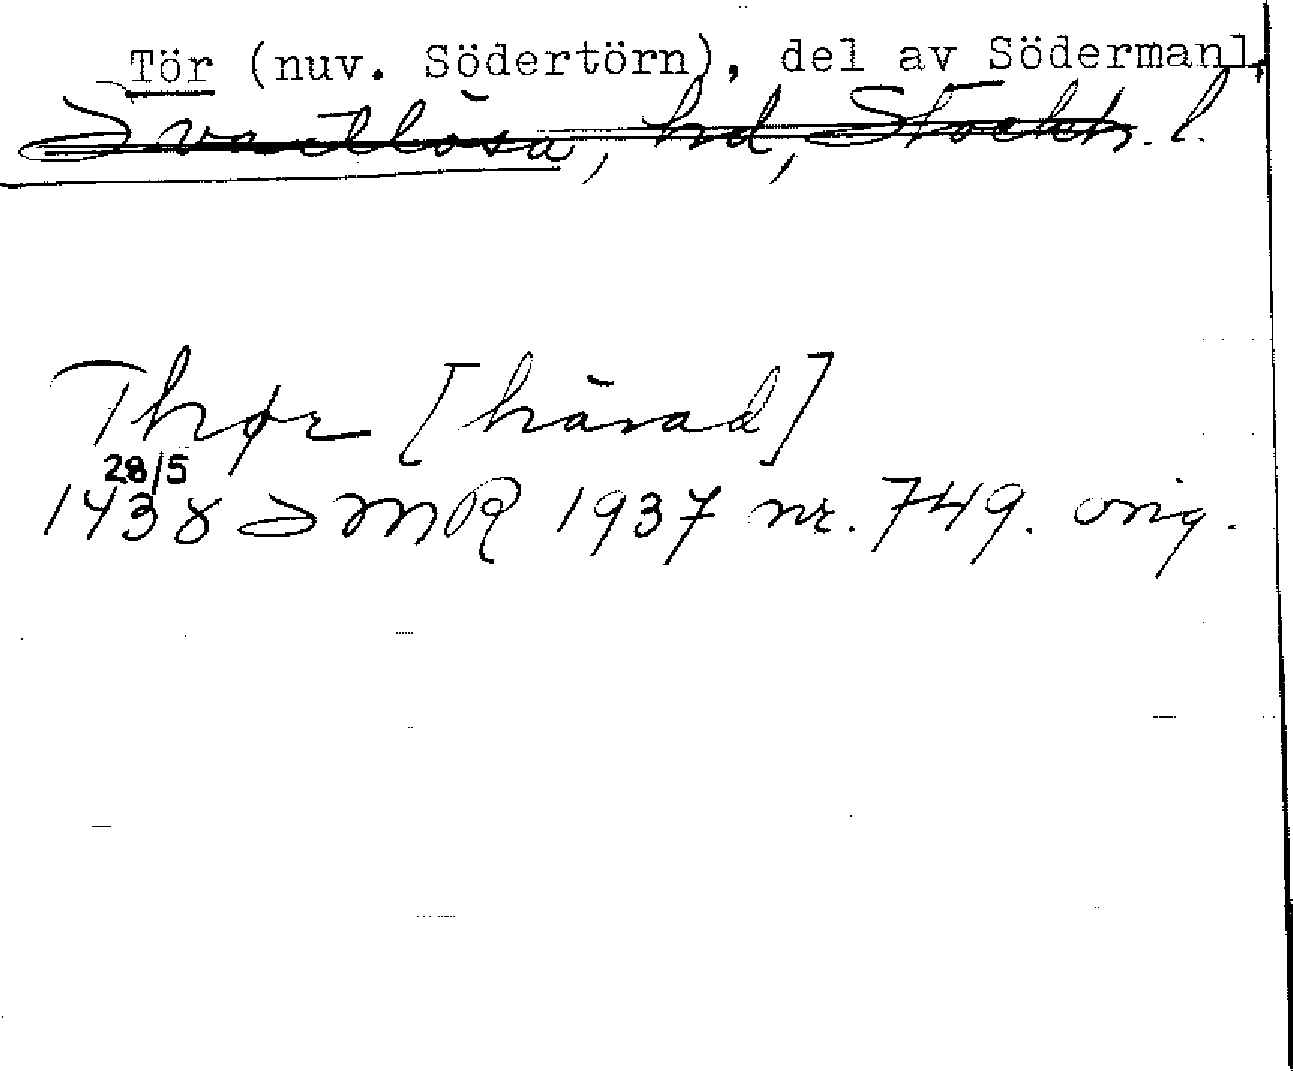 Tör (nuv. Södertörn), del av Södermanl.
Svartlösa, hd, Stockh. l.
Thør [härad]
28/5
1438 SMR 1937 nr. 749. orig.